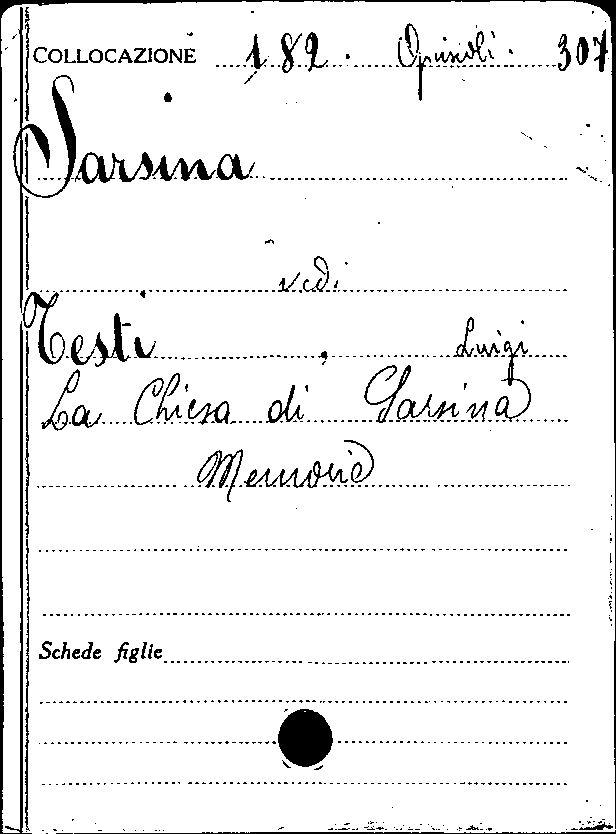 COLLOCAZIONE 182. Opuscoli. 307
Sarsina
vedi
Testi, Luigi
La Chiesa di Sarsina
Memorie
Schede figlie